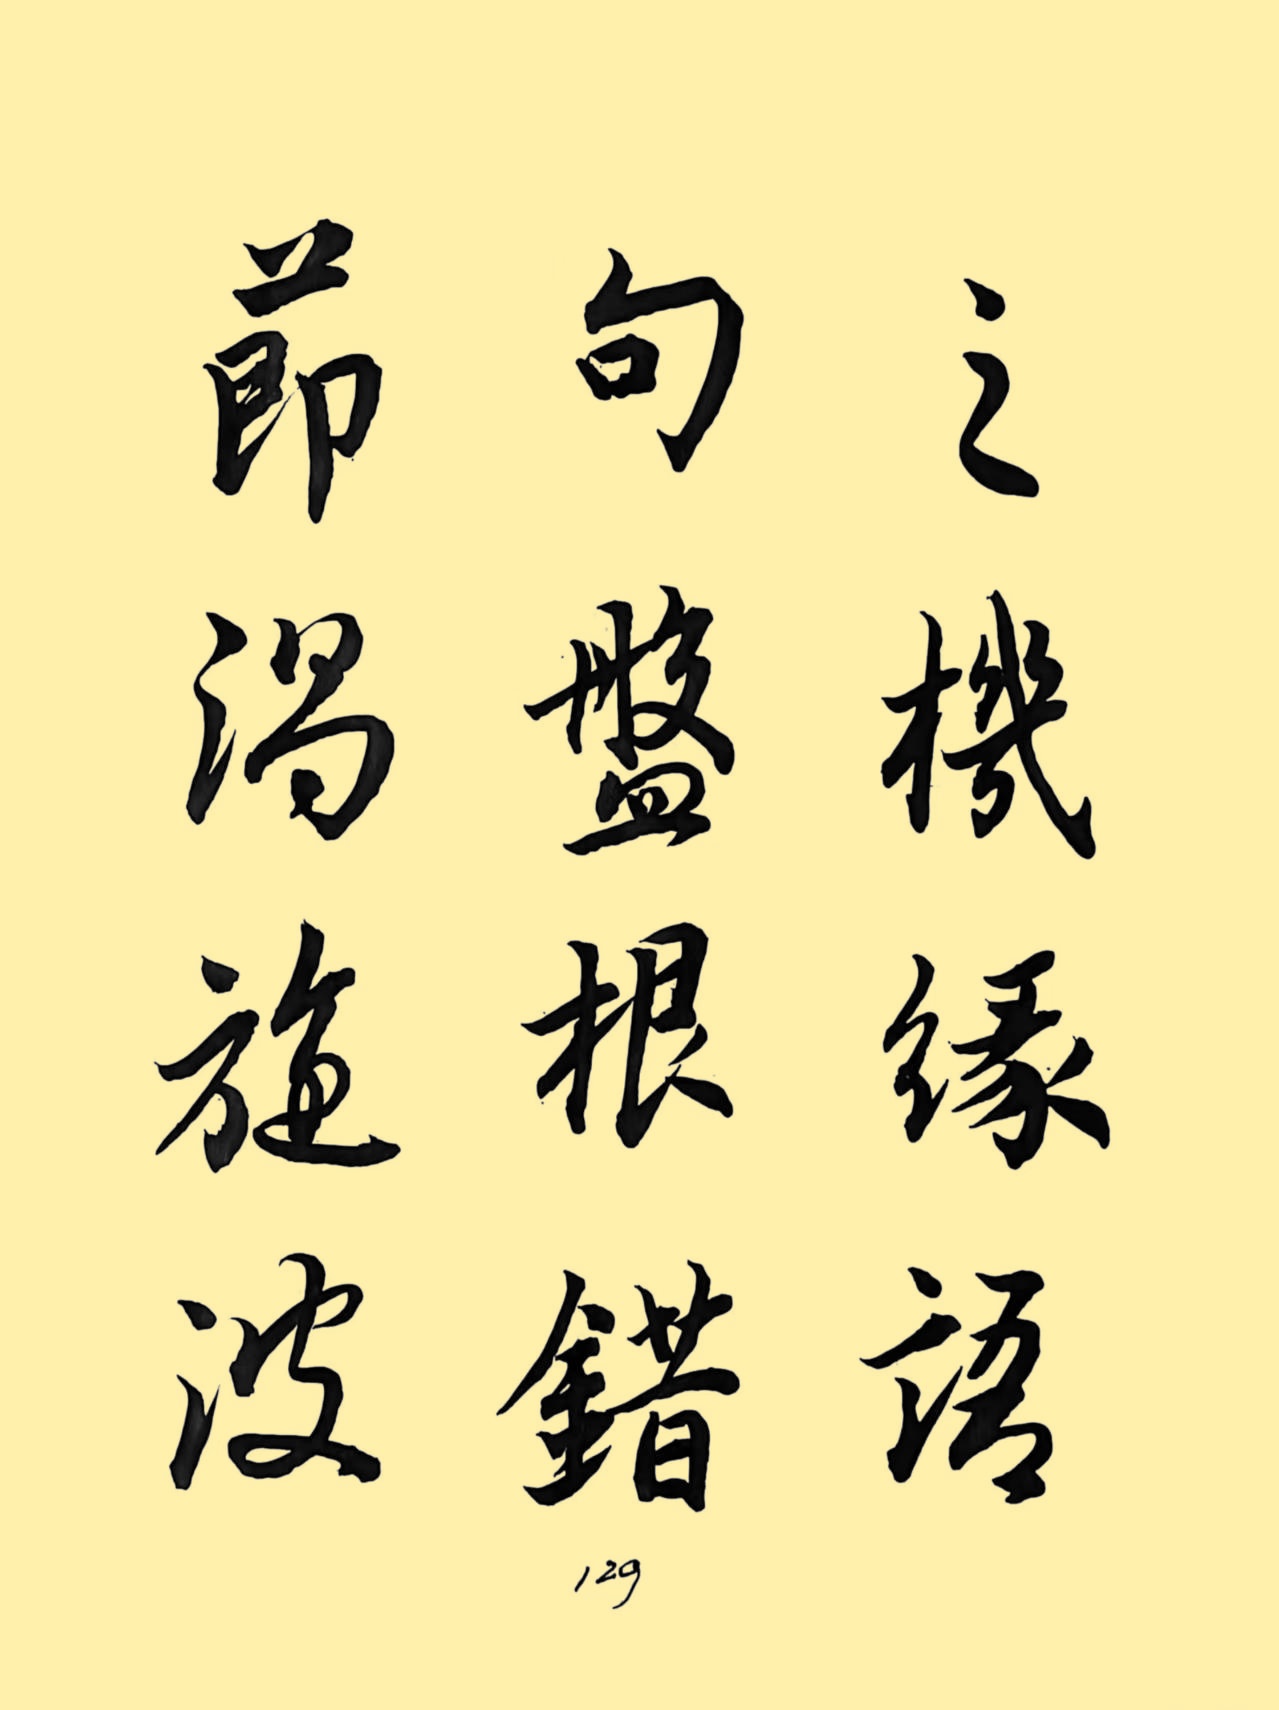 之機緣語
句盤根錯
節渦旋波
129